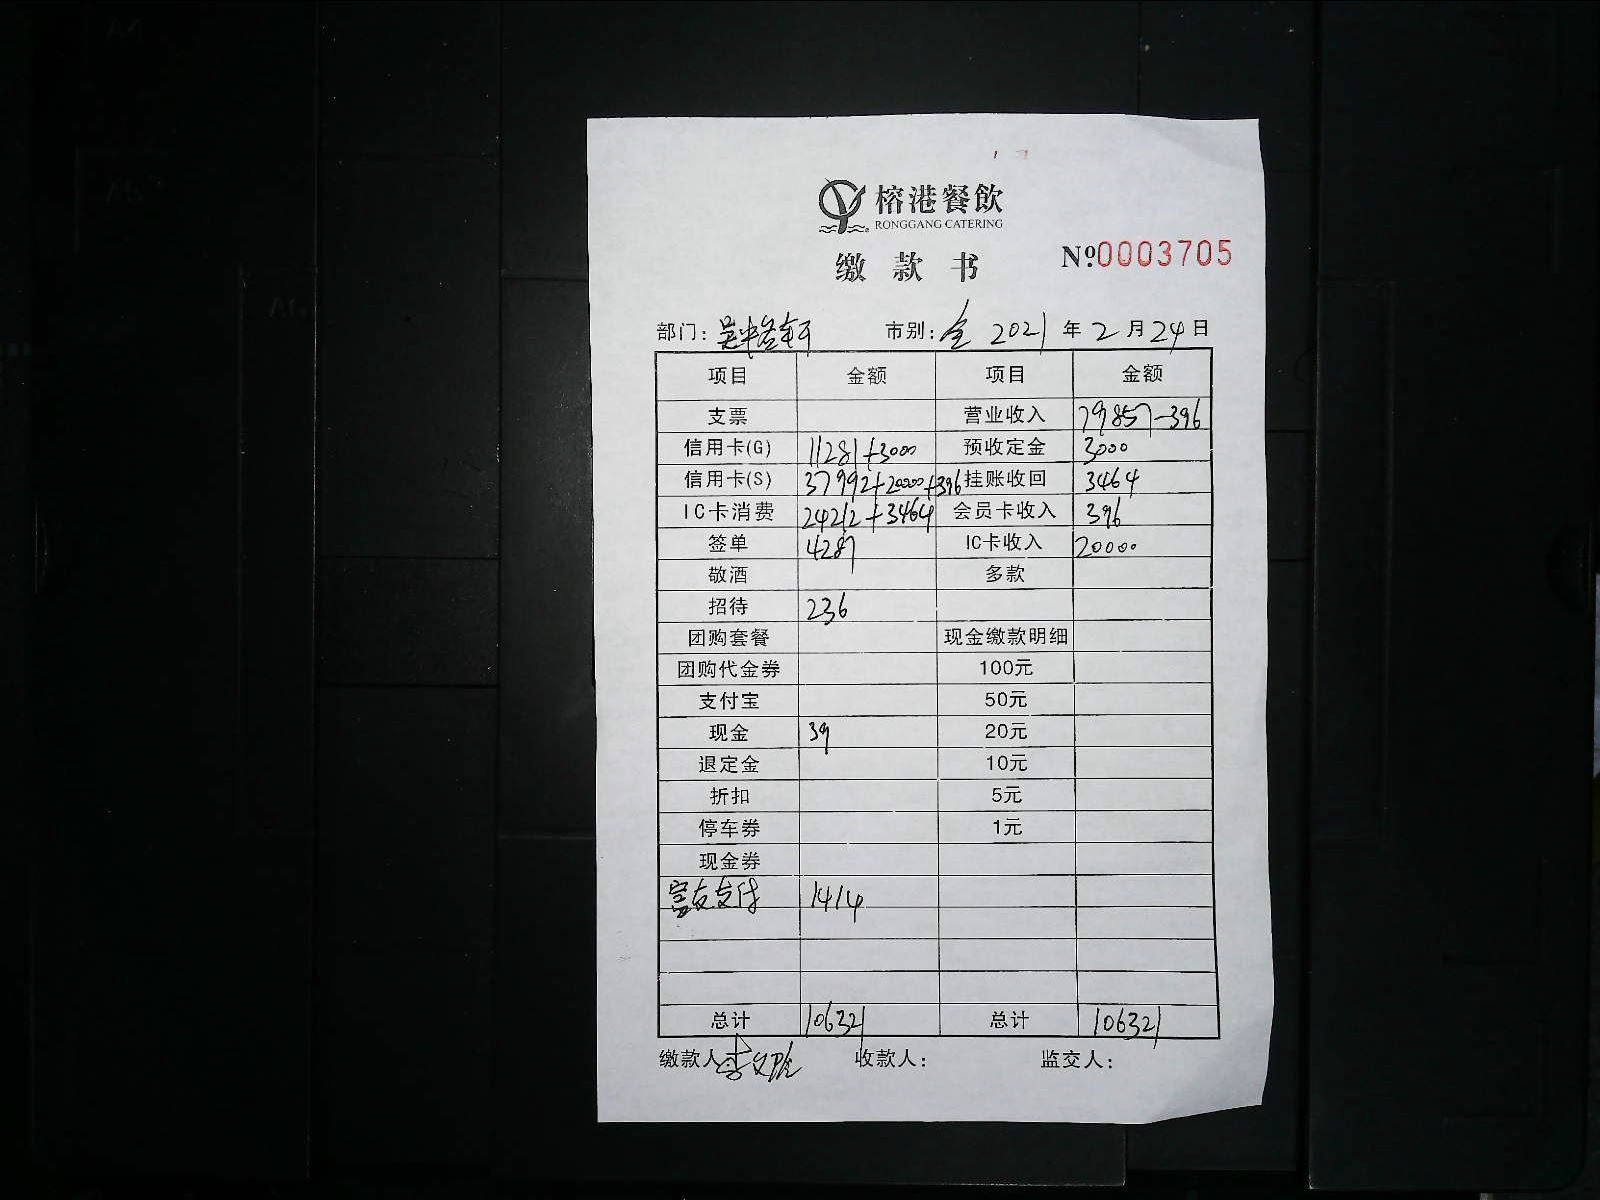 榕港餐飲
RONGGANG CATERING
缴款书 Nº0003705
部门: 市别: 全 2021 年 2 月 24 日
项目 金额 项目 金额
支票 营业收入 79857-396
信用卡(G) 11281+3000 预收定金 3000
信用卡(S) 37992+20000+396 挂账收回 3464
IC卡消费 24212+3464 会员卡收入 396
签单 4287 IC卡收入 20000
敬酒 多款
招待 236
团购套餐 现金缴款明细
团购代金券 100元
支付宝 50元
现金 39 20元
退定金 10元
折扣 5元
停车券 1元
现金券
支付 1414
总计 106321 总计 106321
缴款人: 收款人: 监交人: